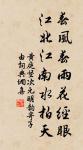 春風春雨花經眼
江北江南水拍天
黃庭堅次元明韻寄子
由詞典網